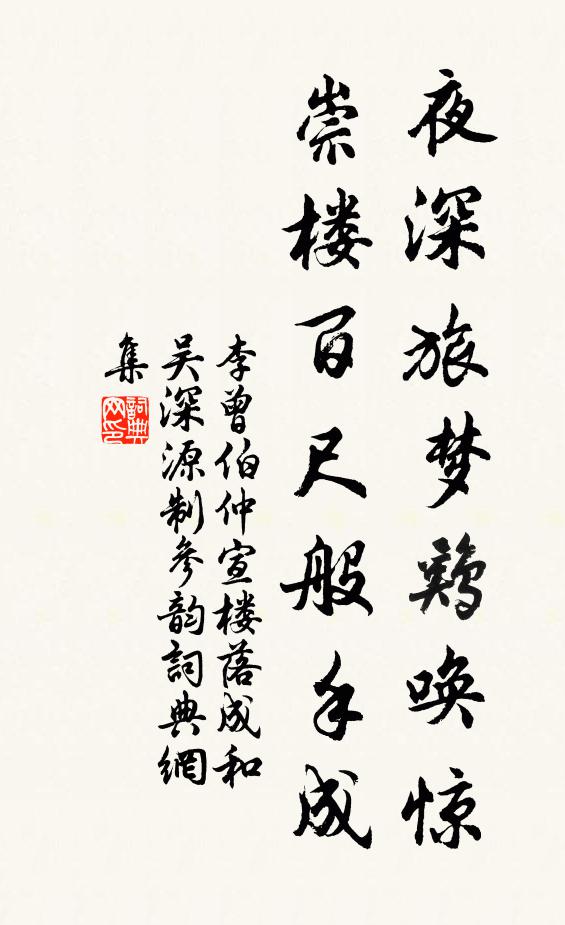 夜深旅梦鷄唤惊
崇楼百尺般手成
李曾伯仲宣楼落成和
吴深源制参韵詞典網
集
詞典
网印